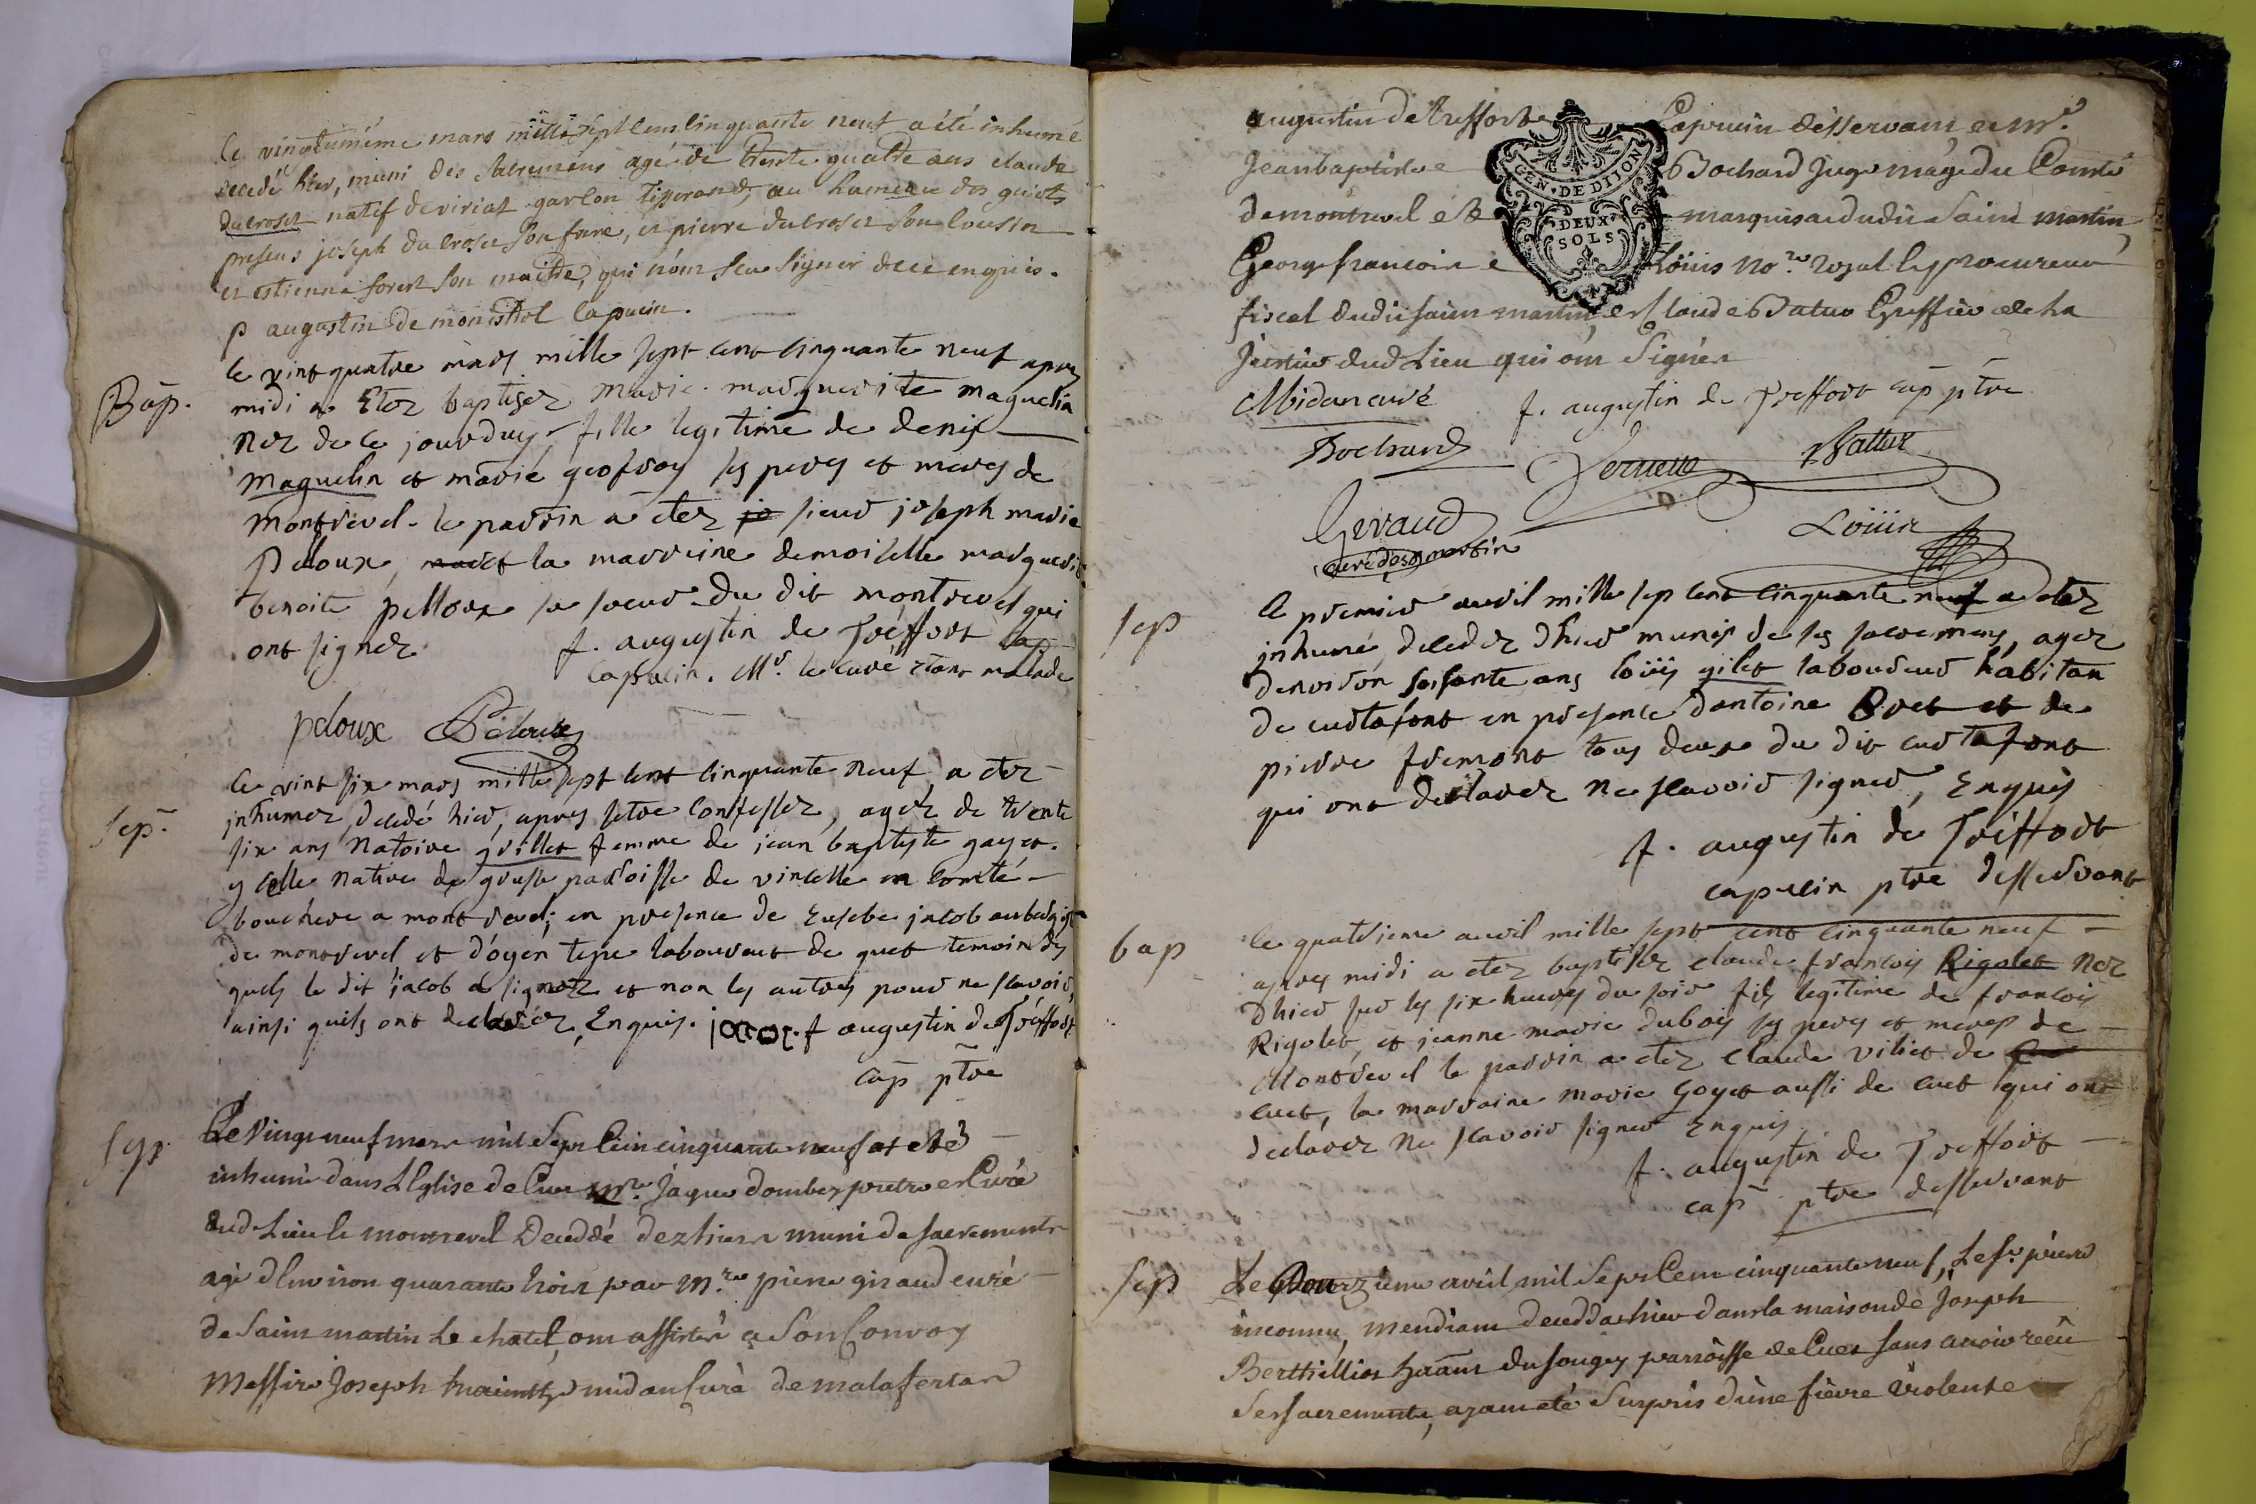 Le vingtunième mars mille sept cens cinquante neuf a été inhumé
decedé hier, muni des sacremens agé de trente quatre ans claude
ducroset natif de viriat garcon tisserand, au hameau des guiets
presens joseph ducroset son frere, et pierre ducroset son cousin
et estienne foret son maitre, qui n'ont sceu signer de ce enquis.
p augustin de monistrol capucin.
Bap.
le vint quatre mars mille sept cent cinquante neuf apres
midi a etez baptisez marie margueritte maguelin
nez de ce jourduy fille legitime de denis
maguelin et marie geofroy ses peres et meres de
montrevel. le parrin a etez jo sieur joseph marie
Peloux, la marreine demoiselle marguerite
benoite pelloux sa soeur du dit montrevel qui
ont signez f. augustin de Treffort cap
capucin. Mr. le curé etant malade
peloux Peloux
sep.
le vint six mars mille sept cent cinquante neuf a etez
inhumez, decedé hier, apres setre confessez, agez de trente
six ans Natoire grillet femme de jean baptyste gayet.
y celle native de gruse parroisse de vincelle en comté
bouchere a montrevel; en presence de Eusebe jacob aubergist
de montrevel et doyen tepe laboureur de guet temoins des
quels le dit jacob a signez et non les autres pour ne scavoir,
ainsi quils ont declarez, Enquis. jacob. f augustin de Treffort
cap ptre
sep.
Le Vingt neuf mars mil Sept Cent cinquante neuf at eté
inhumé dans L'Eglise de Cuet mre. Jaque dombey pretre et Curé
dud. Lieu le montrevel Decedé dez hier muni de sacrements
agé d'Environ quarante trois par mre pierre giraud curé
de Saint martin Le chatel, ont assisté a Son Convoy
Messire Joseph midan Curé de malafertar
augustin de treffort Capucin desservant et mr.
Jean baptiste Bochard Juge mage du Comté
de montrevel et marquisat dudit Saint martin,
George francois Loüis nore. royal et procureur
fiscal dudit saint martin, et Claude Batur Greffier de la
Justice dud Lieu qui ont Signés
GEN. DE DIJON
DEUX
SOLS
Midan curé f. augustin de Treffort cap ptre
Bochard Battur
Geraud Loüis
curé de st martin
sep
le premier avril mille sept cent cinquante neuf a etez
inhumé decedez dhier munis de ses sacremens, agez
denviron soisante ans loüis gilet laboureur habitan
de curtafont en presence dantoine Broet et de
pierre fremont tous deux du dit curtafont
qui ont declarez ne scavoir signer, Enquis
f. augustin de Treffort
capucin ptre desservant
bap
le quatrieme avril mille sept cent cinquante neuf
apres midi a etez baptisez claude francois Rigolet nez
dhier sur les six heures du soir fils legitime de francois
Rigolet, et jeanne marie dubois ses peres et meres de
Montrevel le parrin a etez claude viliet de
cuet, la marraine marie goyet aussi de cuet qui ont
declarez ne scavoir signer Enquis
f. augustin de Treffort
cap ptre desservant
sep
Le Douzieme avril mil Sept Cent cinquante neuf, Le Sr. pierre
inconnu, mendiant decedda hier dans la maison de Joseph
Berthillier du Sougey parroisse de Cuet sans avoir reçu
Ses sacrements, ayant eté Surpris d'une fièvre violente